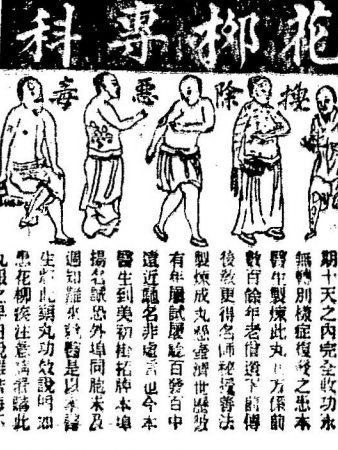 花柳專科
搜除惡毒
期十天之內完全收功水
無轉別樣症復發之患本
醫生製煉此丸其方係前
數百餘年老僧遺下師傳
後敎更得名師秘授善法
製煉成丸懸壺濟世歷數
有年屢試屢驗百發百中
遠近馳名非虛言也今本
醫生到美初掛招牌本埠
揚名誠恐外埠同胞未及
週知難來就醫是以本醫
生將此藥丸功效說明如
患花柳疾注意請購此
丸服之